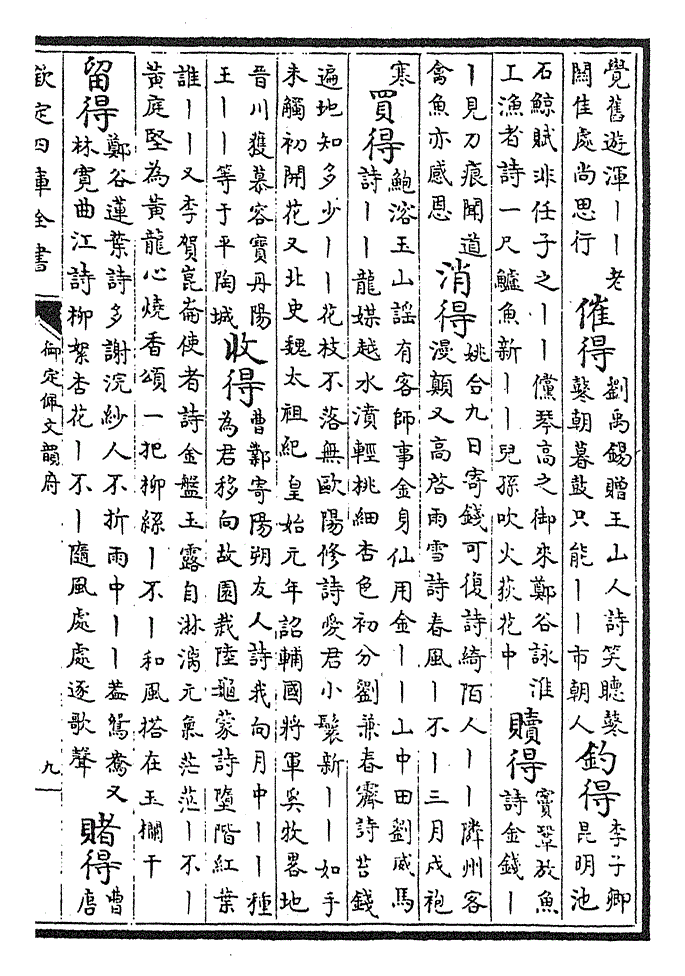 覺舊遊渾｜｜老
闗佳處尚思行
催得
劉禹錫贈王山人詩笑聽鼕
鼕朝暮鼓只能｜｜市朝人
釣得
李子卿
昆明池
石鯨賦非任子之｜｜儻琴高之御來鄭谷詠淮
工漁者詩一尺鱸魚新｜｜兒孫吹火荻花中
贖得
竇鞏放魚
詩金錢｜
｜見刀痕聞道
禽魚亦感恩
消得
姚合九日寄錢可復詩綺陌人｜｜隣州客
漫顛又高啓雨雪詩春風｜不｜三月戍袍
寒
買得
鮑溶玉山謡有客師事金身仙用金｜｜山中田劉威馬
詩｜｜龍媒越水濆輕桃細杏色初分劉兼春霽詩苔錢
遍地知多少｜｜花枝不落無歐陽修詩愛君小鬟新｜｜如手
未觸初開花又北史魏太祖紀皇始元年詔輔國將軍奚牧畧地
晉川獲慕容寶丹陽
王｜｜等于平陶城
收得
曹鄴寄陽朔友人詩我向月中｜｜種
為君移向故園栽陸龜蒙詩墮階紅葉
誰｜｜又李賀崑崙使者詩金盤玉露自淋漓元氣茫茫｜不｜
黃庭堅為黃龍心燒香頌一把柳絲｜不｜和風搭在玉欄干
留得
鄭谷蓮葉詩多謝浣紗人不折雨中｜｜葢鴛鴦又
林寛曲江詩柳絮杏花｜不｜隨風處處逐歌聲
賭得
曹
唐
欽定四庫全書
御定佩文韻府
九